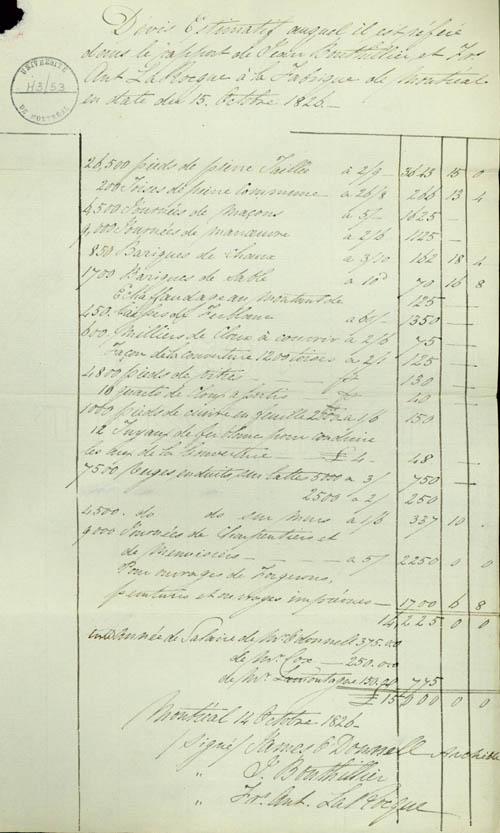 Devis Estimatif auquel il est référé
dans le rapport de Jean Bouthillier et Frs
Ant. LaRocque à la Fabrique de Montréal
en date du 15. Octobre 1826 —
UNIVERSITÉ
H3/53
DE MONTRÉAL
26,500 pieds de pierre Taillée à 2/9 3643 15 0
200 Toises de pierre Commune à 26/8 266 13 4
6,500 Journées de maçons à 5/ 1625 —
9,000 Journées de manœuvre à 2/6 1125 —
850 Bariques de Chaux à 3/10 162 18 4
1700 Bariques de Sable à 10d 70 16 8
Echaffaudage au montant de 125 —
450. Caisses de Ferblanc à 60/ 1350 —
600. Milliers de Cloux à couvrir à 2/6 75 —
Façon de la Couverture 1200 toises à 2/1 125 —
4800 pieds de vitres 130 —
10 quarts de Cloux assortis 40 —
1000 pieds de cuivre en feuille à 1/6 150
12 Tuyaux de fer blanc pour conduire
les eaux de la Couverture £ 4 — 48 —
7500 Verges enduits sur lattes 5000 à 3/ 750 —
2500 à 2/ 250
4500. do do sur murs à 1/6 337 10 .
9000 Journées de Charpentiers et
de Menuisiers — à 5/ 2250 0 0
Pour ouvrages de Forgerons,
peintures et ouvrages imprévus — 1700 6 8
14,225 0 0
Année de Salaire de Mr Odonnell 375.00
de Mr Cox — 250.00
de Mr Lamontagne 150.00 775
£ 15000 0 0
Montréal 14 Octobre 1826 —
/Signé/ James O'Donnell Architecte
" J. Bouthillier
" Frs. Ant. LaRocque